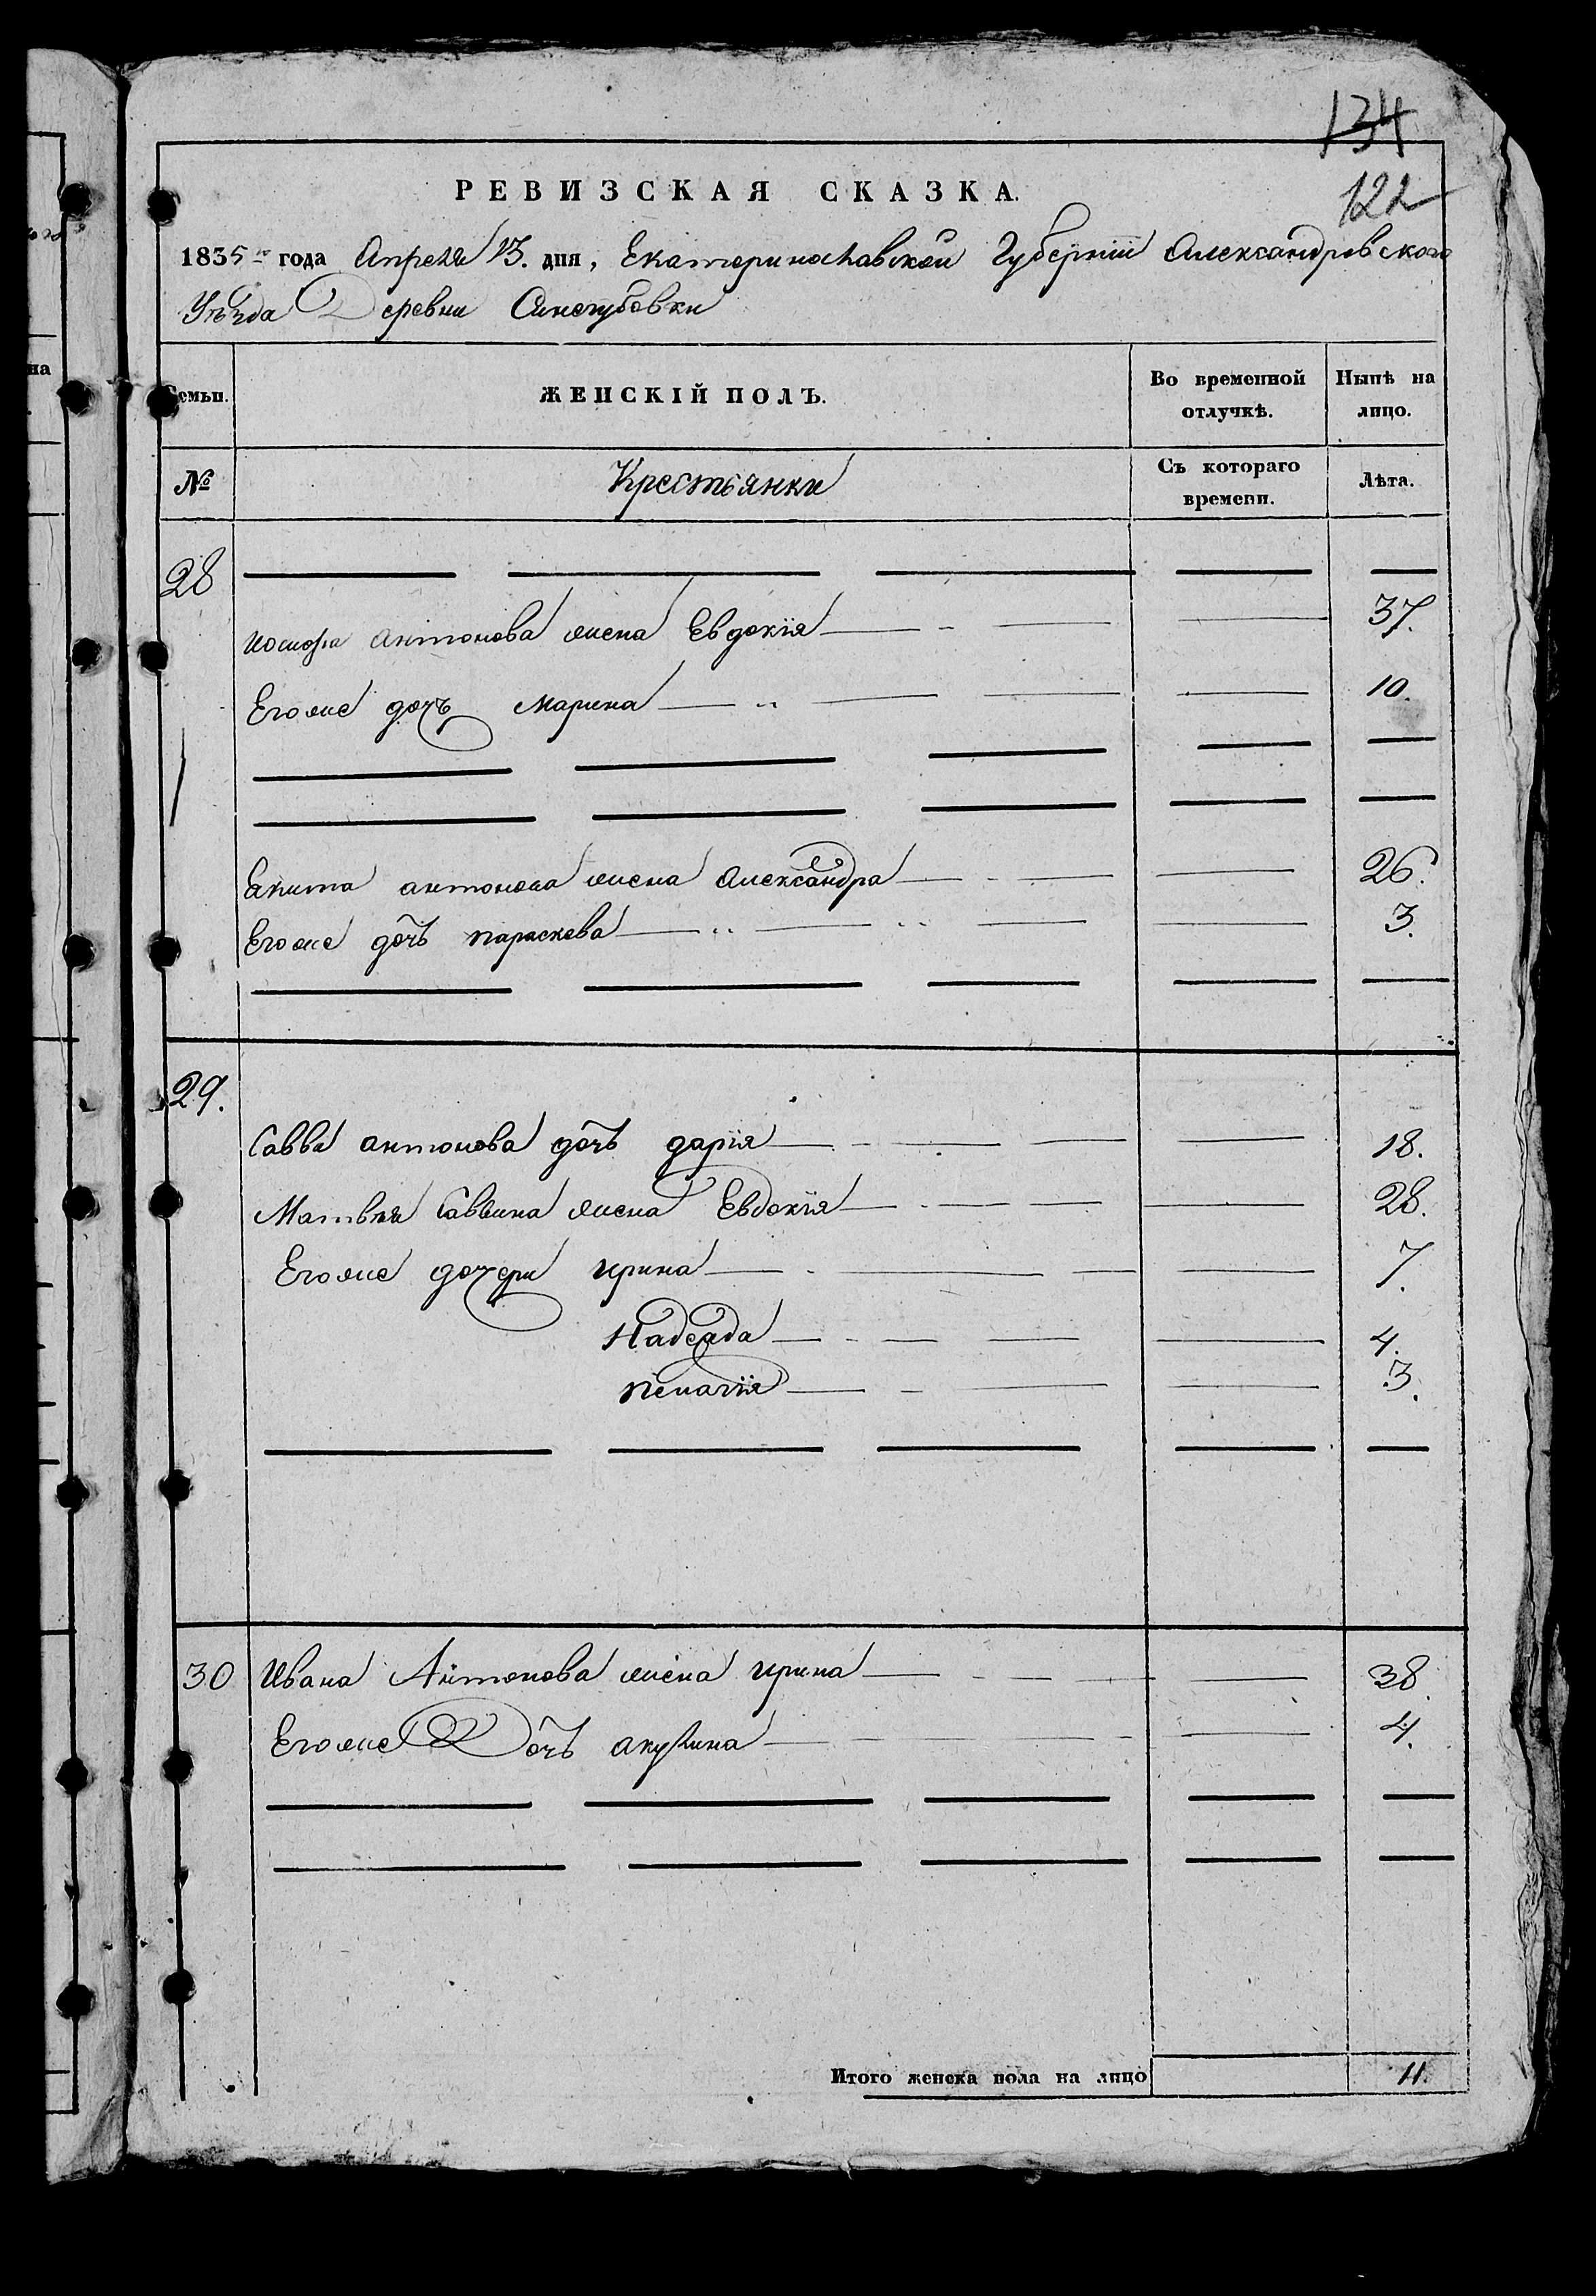 134
122
РЕВИЗСКАЯ СКАЗКА.
1835 года Апреля 13. дня, Екатеринославской Губернии Александровского
Уѣзда Деревни Синегубовки
Семьи. ЖЕНСКІЙ ПОЛЪ. Во временной отлучкѣ. Нынѣ на лицо.
№ Крестьянки Съ котораго времени. Лѣта.
28
антонова жена Евдокія 37.
Егоже дочь марина 10.
антонова жена александра 26.
Егоже дочь параскева 3.
29.
Савва антонова дочь дарія 18.
Матвея Саввина жена Евдокія 28.
Егоже дочери ирина 7.
Надежда 4.
пелагія 3.
30 Ивана Антонова жена ирина 38.
Егоже Дочь акулина 4.
Итого женска пола на лицо 11.